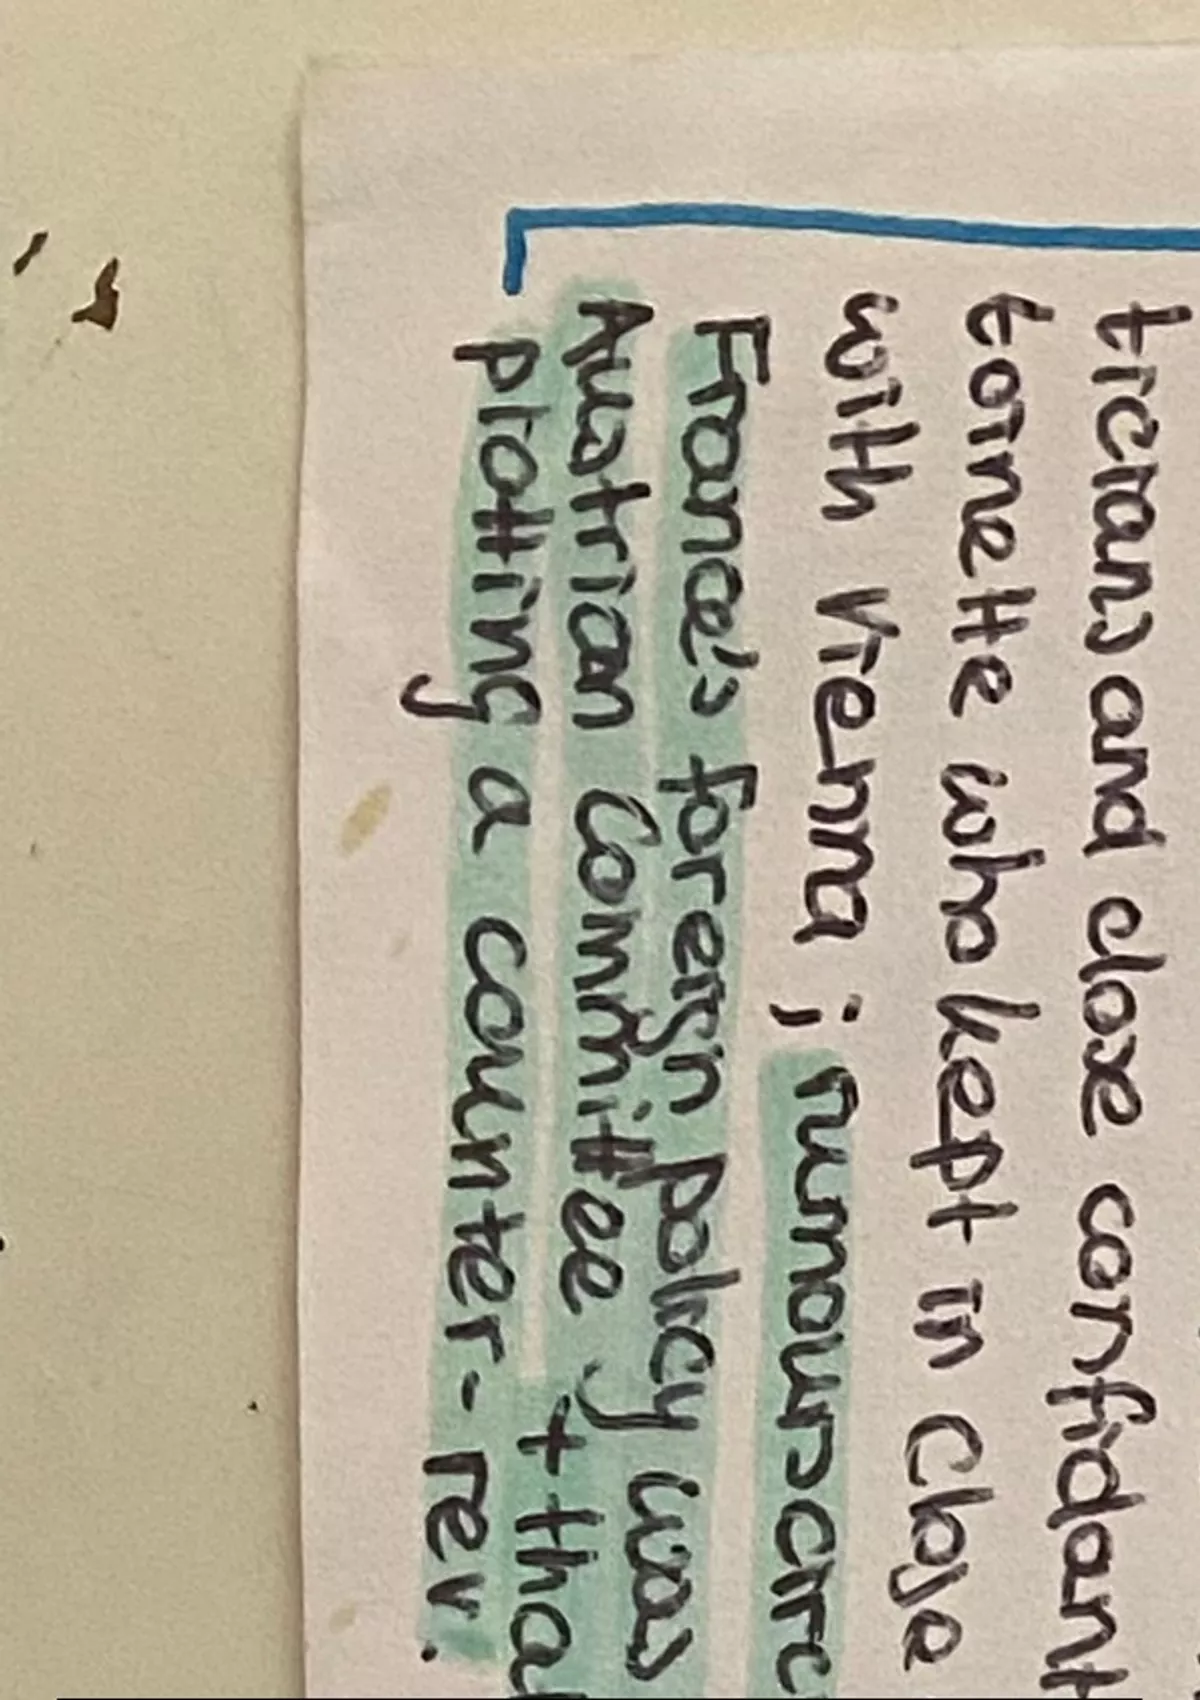 ticians and close confidant
toinette who kept in close
with Vienna ; rumours circ
France's foreign policy was
Austrian Committee, + tha
plotting a counter-rev.